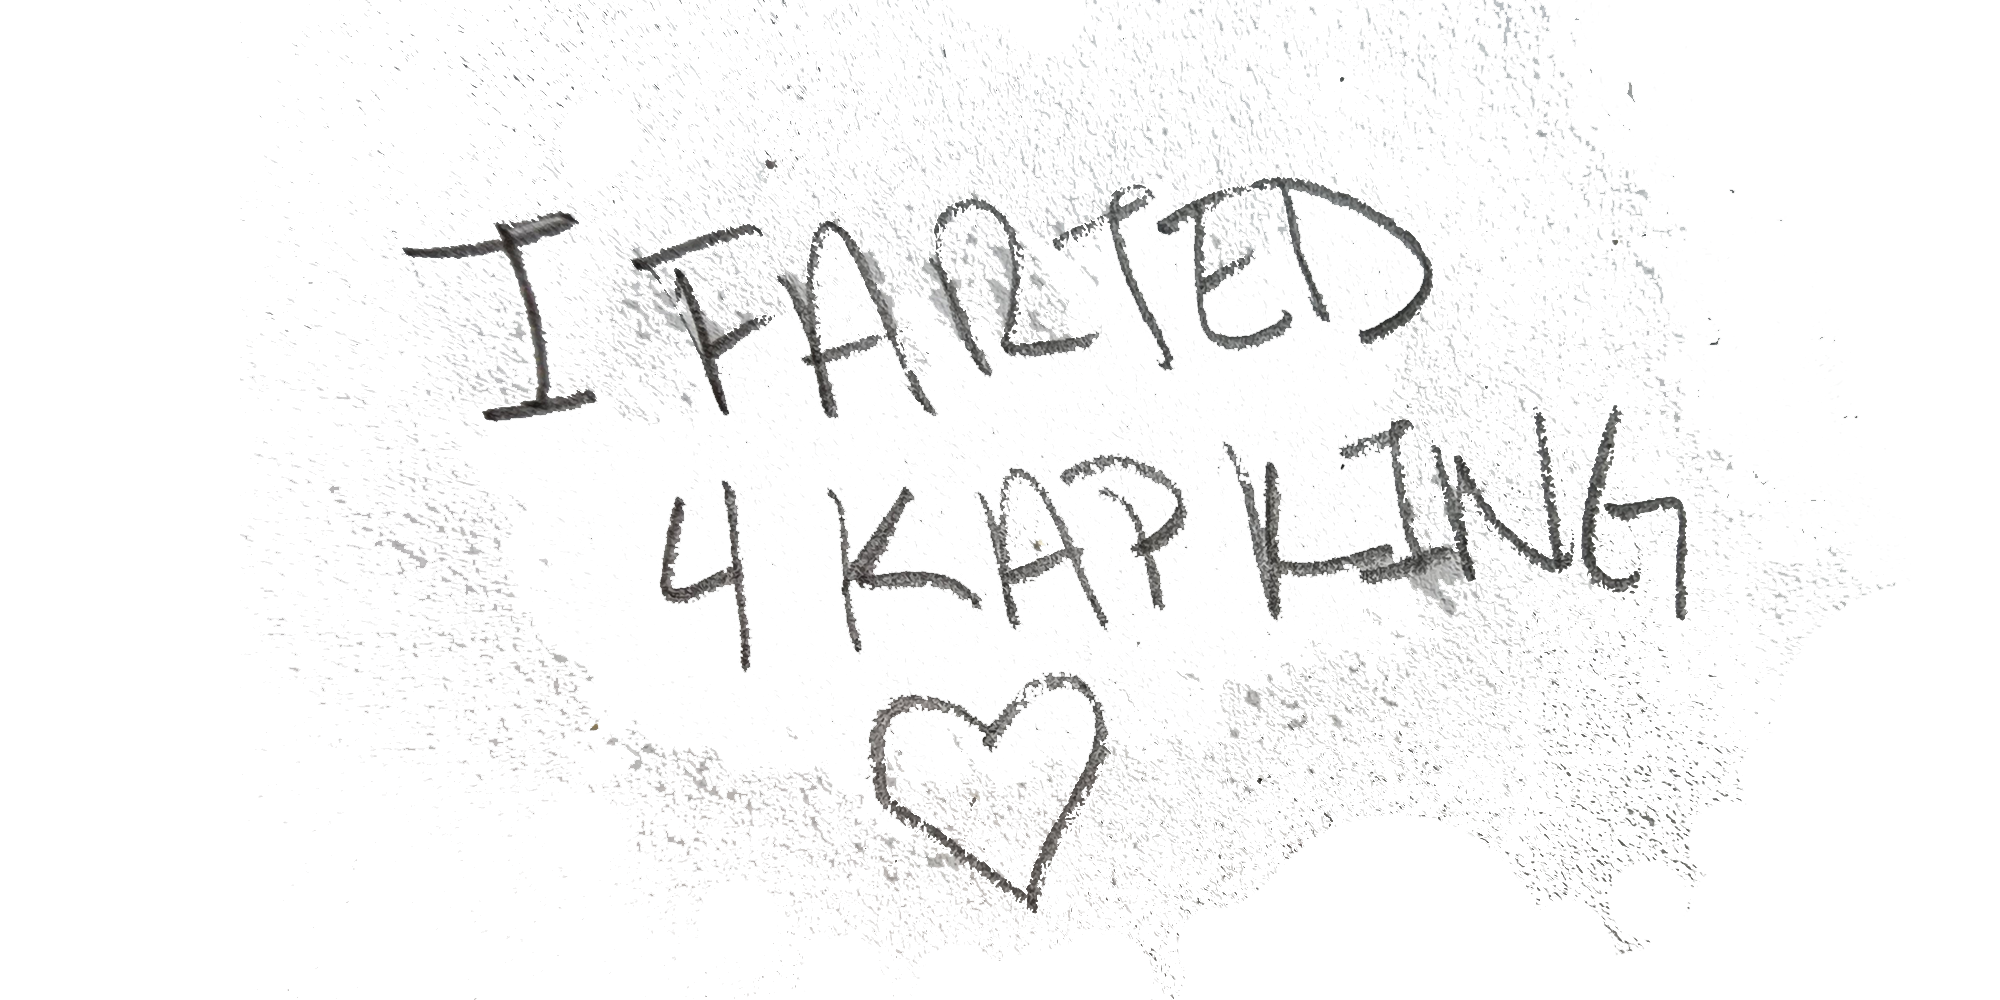 I FARTED
4 KAP KING